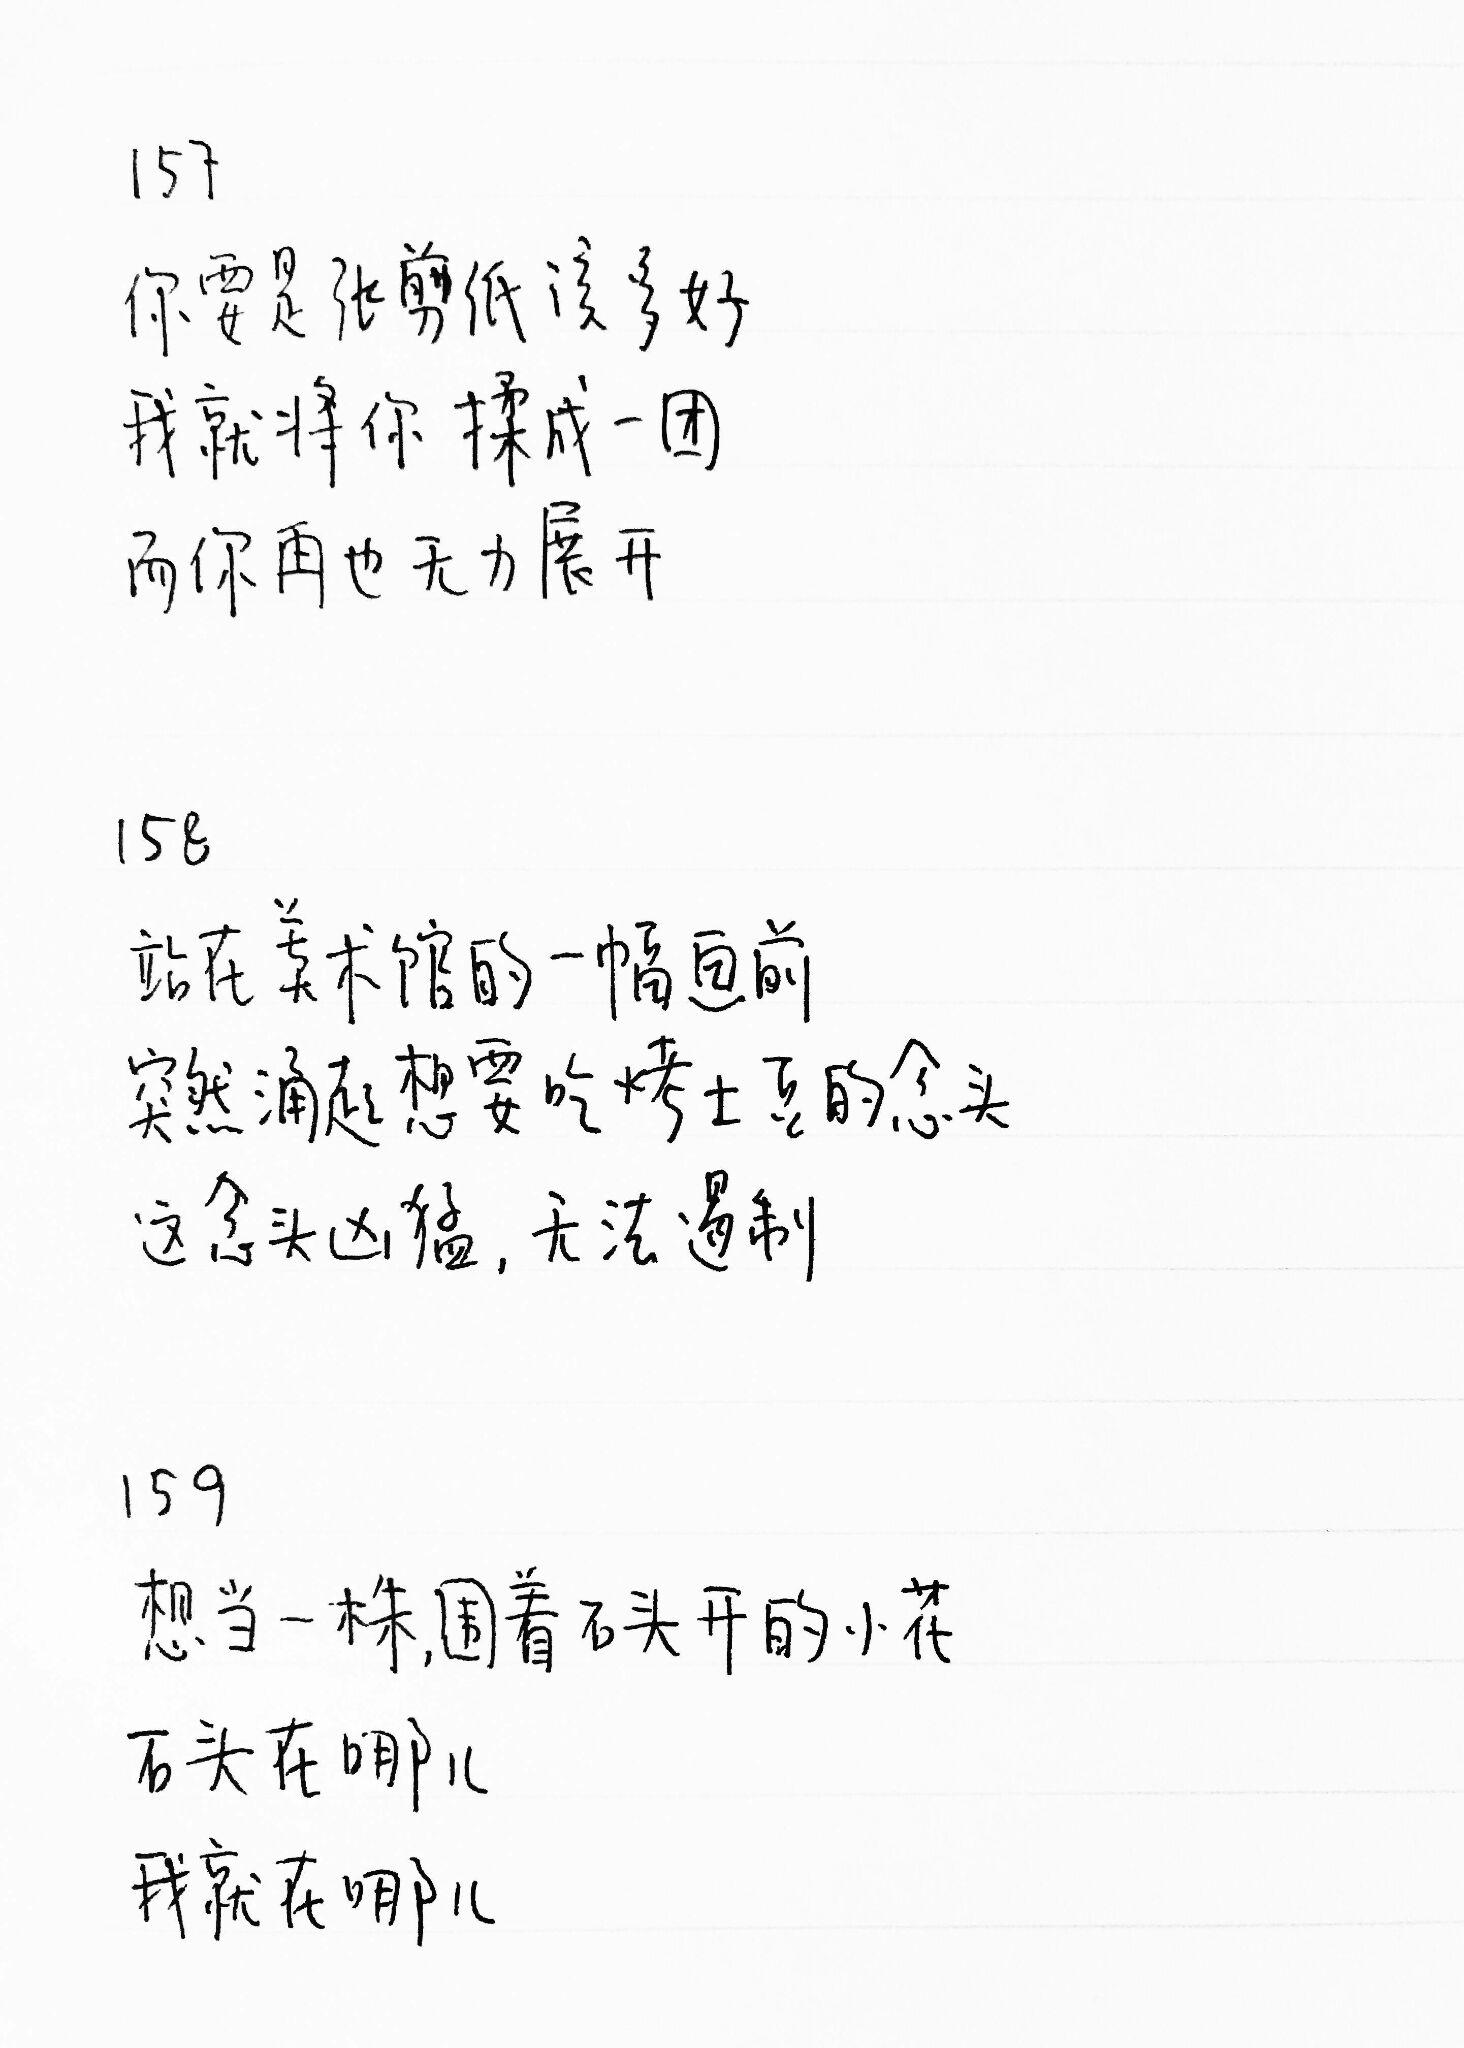 157
你要是张剪纸该多好
我就将你揉成一团
而你再也无力展开
158
站在美术馆的一幅画前
突然涌起想要吃烤土豆的念头
这念头凶猛,无法遏制
159
想当一株,围着石头开的小花
石头在哪儿
我就在哪儿